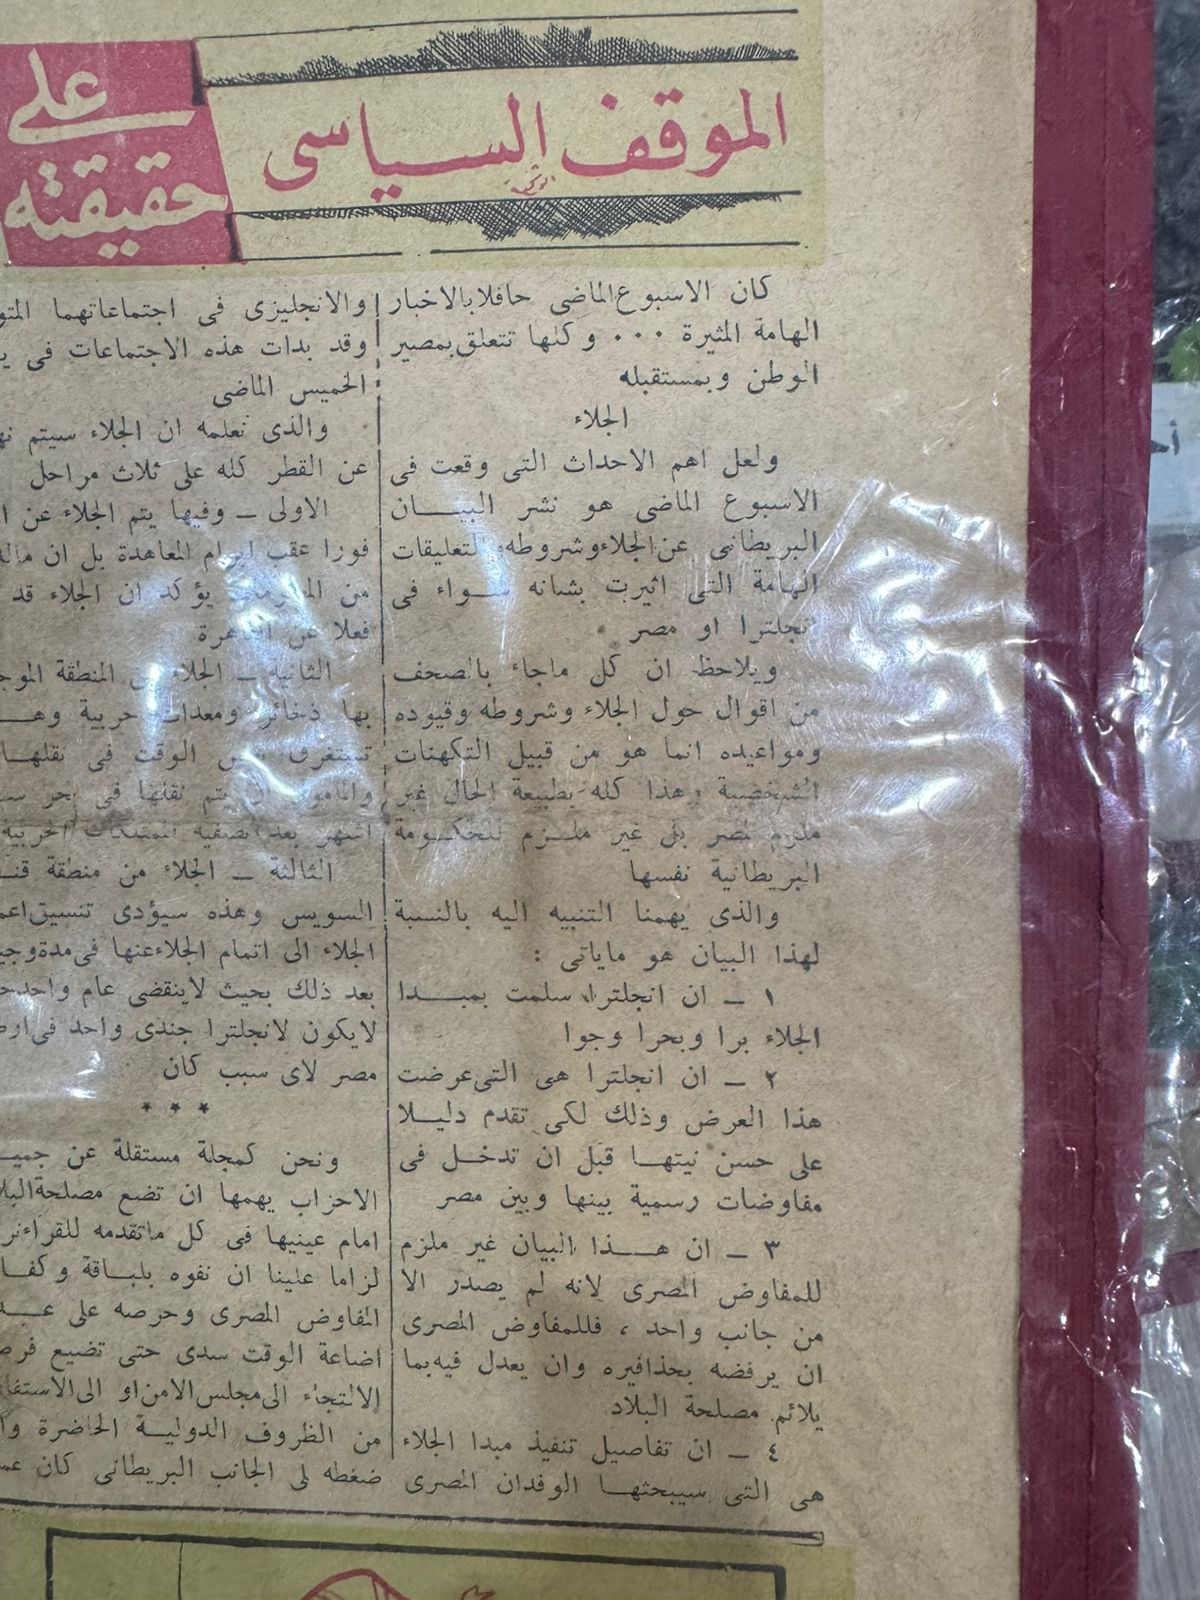 الموقف السياسى
على
حقيقته
كان الاسبوع الماضى حافلا بالاخبار
الهامة المثيرة ... وكلها تتعلق بمصير
الوطن وبمستقبله
الجلاء
ولعل اهم الاحداث التى وقعت فى
الاسبوع الماضى هو نشر البيان
البريطانى عن الجلاء وشروطه والتعليقات
الهامة التى اثيرت بشانه سواء فى
انجلترا او مصر
ويلاحظ ان كل ماجاء بالصحف
من اقوال حول الجلاء وشروطه وقيوده
ومواعيده انما هو من قبيل التكهنات
الشخصية وهذا كله بطبيعة الحال غير
ملزم لمصر بل غير ملزم للحكومة
البريطانية نفسها
والذى يهمنا التنبيه اليه بالنسبة
لهذا البيان هو ماياتى :
١ - ان انجلترا سلمت بمبدا
الجلاء برا وبحرا وجوا
٢ - ان انجلترا هى التى عرضت
هذا العرض وذلك لكى تقدم دليلا
على حسن نيتها قبل ان تدخل فى
مفاوضات رسمية بينها وبين مصر
٣ - ان هذا البيان غير ملزم
للمفاوض المصرى لانه لم يصدر الا
من جانب واحد ، فللمفاوض المصرى
ان يرفضه بحذافيره وان يعدل فيه بما
يلائم مصلحة البلاد
٤ - ان تفاصيل تنفيذ مبدا الجلاء
هى التى سيبحثها الوفدان المصرى
والانجليزى فى اجتماعاتهما
وقد بدات هذه الاجتماعات فى
الخميس الماضى
والذى نعلمه ان الجلاء سيتم
عن القطر كله على ثلاث مراحل
الاولى - وفيها يتم الجلاء عن
فورا عقب ابرام المعاهدة بل ان
من يؤكد ان الجلاء قد
فعلا عن القاهرة
الثانية - الجلاء المنطقة
بها ذخائر ومعدات حربية
تستغرق الوقت فى نقلها
والمامول ان يتم نقلها فى بحر
اشهر بعد تصفية الحربية
الثالثة - الجلاء من منطقة
السويس وهذه سيؤدى تنسيق
الجلاء الى اتمام الجلاء عنها فى مدة
بعد ذلك بحيث لاينقضى عام واحد
لايكون لانجلترا جندى واحد فى
مصر لاى سبب كان
* * *
ونحن كمجلة مستقلة عن
الاحزاب يهمها ان تضع مصلحة
امام عينيها فى كل ماتقدمه للقراء
لزاما علينا ان نفوه بلباقة
المفاوض المصرى وحرصه على
اضاعة الوقت سدى حتى تضيع
الالتجاء الى مجلس الامن او الى
من الظروف الدولية الحاضرة
ضغطه لى الجانب البريطانى كان